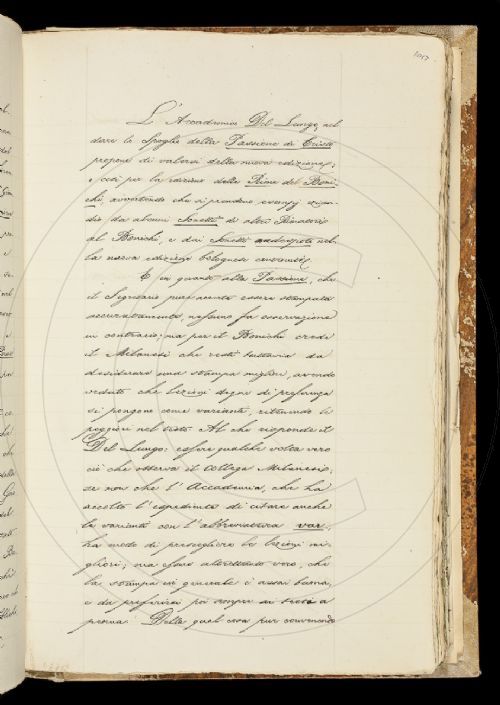 1017
L'Accademico Del Lungo, nel
dare lo spoglio della Passione di Cristo
propone di valersi della nuova edizione,
e così per la citazione delle Rime del Boni-
chi, avvertendo che si prendano esempj
da alcuni Sonetti di altri Rimatori
al Bonichi, e dai Sonetti nel-
la nuova edizione bolognese
E in quanto alla Passione, che
il Segretario può essere stampata
accuratamente, nessuno fa osservazione
in contrario; ma per il Bonichi crede
il Milanesi che resti tuttavia da
desiderare una stampa migliore, avendo
veduto che lezioni degne di preferenza
si pongono come varianti, ritenendo le
peggiori nel testo. Al che risponde il
Del Lungo: essere qualche volta vero
ciò che osserva il collega Milanesi,
se non che l'Accademia, che ha
accolto l'espediente di citare anche
le varianti con l'abbreviatura var.,
ha modo di prescegliere le lezioni mi-
gliori; ma essere altrettanto vero, che
la stampa in generale è assai buona,
e da preferirsi poi sempre ai testi a
penna. Della qual cosa pur convenendo